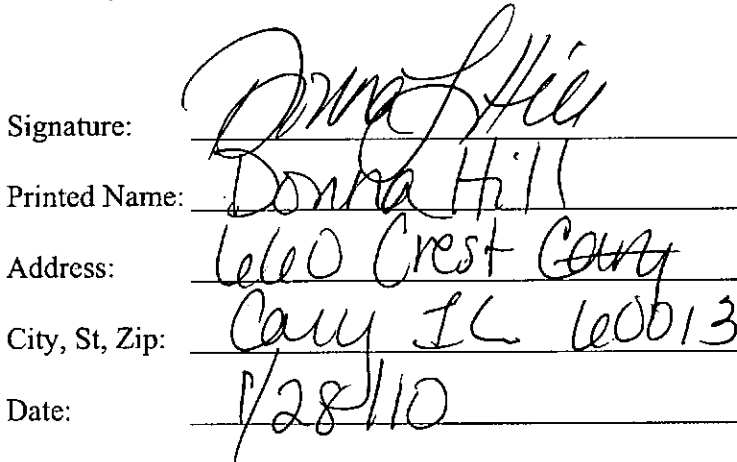 Signature: Donna L Hill
Printed Name: Donna Hill
Address: 660 Crest Cary
City, St, Zip: Cary IL 60013
Date: 1/28/10